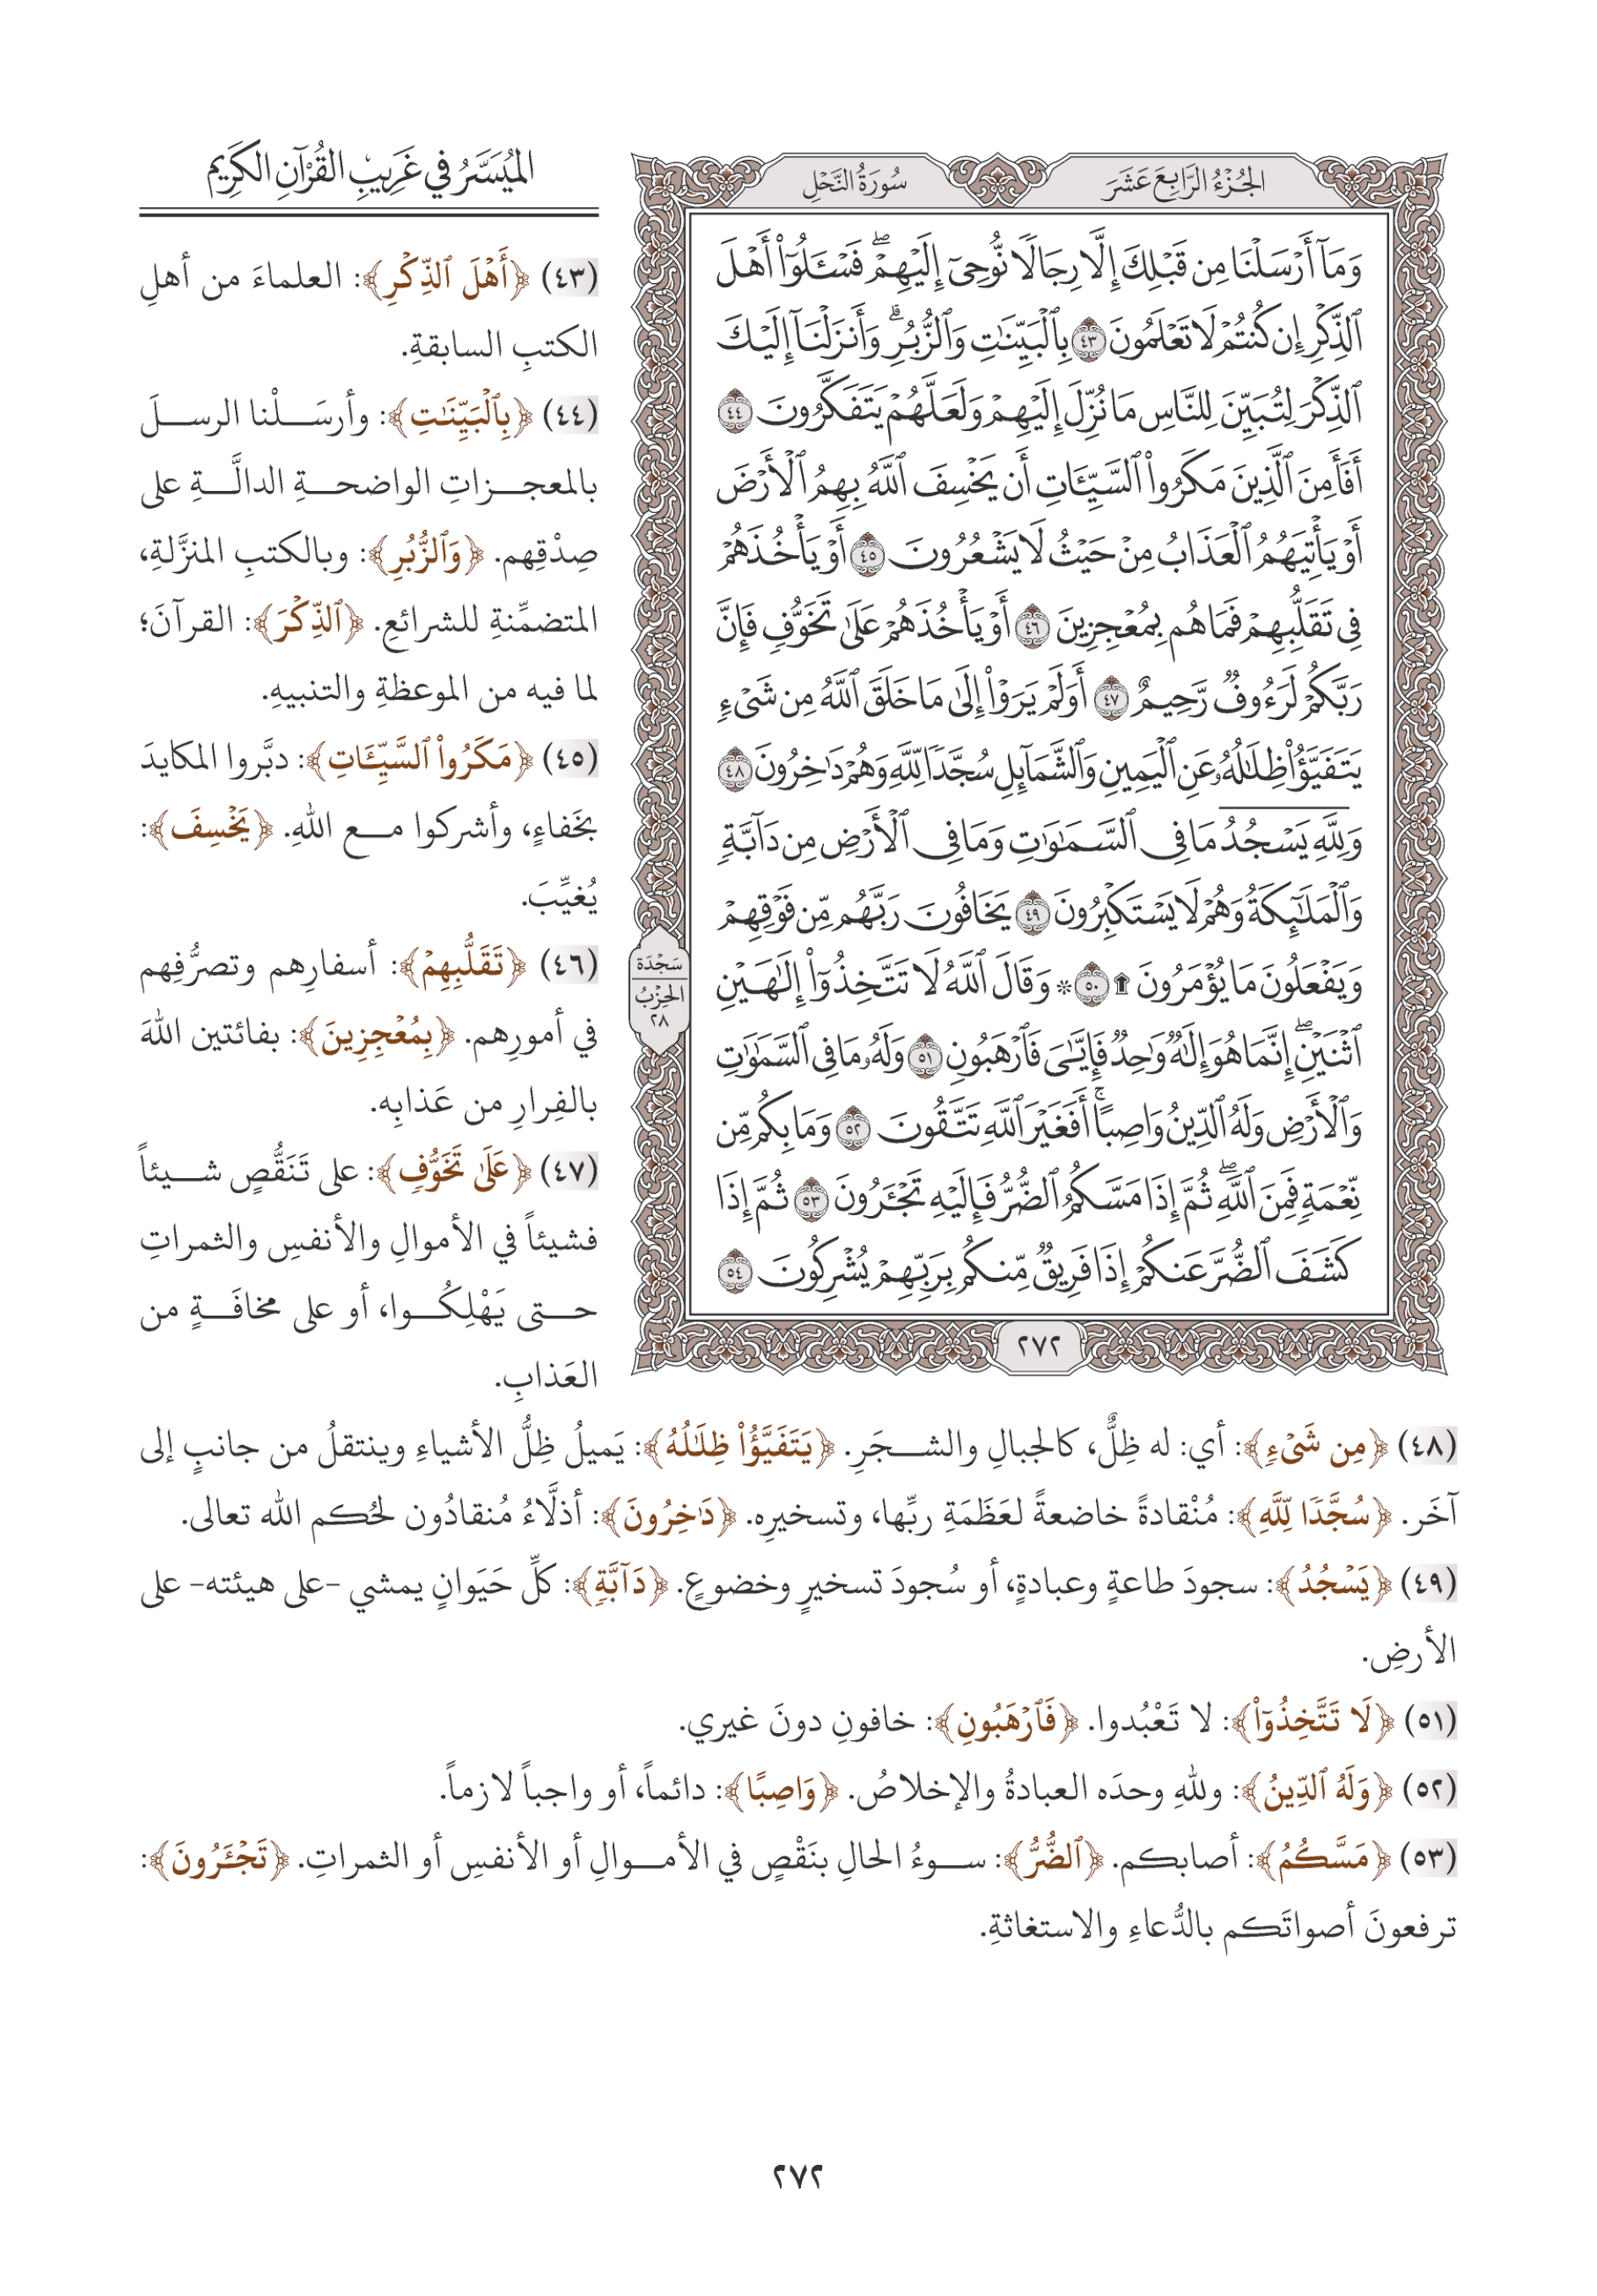 الجُزْءُ الرَّابِعَ عَشَرَ
سُورَةُ النَّحْلِ
وَمَآ أَرْسَلْنَا مِن قَبْلِكَ إِلَّا رِجَالًا نُّوحِىٓ إِلَيْهِمْۖ فَسْـَٔلُوٓا۟ أَهْلَ
ٱلذِّكْرِ إِن كُنتُمْ لَا تَعْلَمُونَ ٤٣ بِٱلْبَيِّنَـٰتِ وَٱلزُّبُرِۗ وَأَنزَلْنَآ إِلَيْكَ
ٱلذِّكْرَ لِتُبَيِّنَ لِلنَّاسِ مَا نُزِّلَ إِلَيْهِمْ وَلَعَلَّهُمْ يَتَفَكَّرُونَ ٤٤
أَفَأَمِنَ ٱلَّذِينَ مَكَرُوا۟ ٱلسَّيِّـَٔاتِ أَن يَخْسِفَ ٱللَّهُ بِهِمُ ٱلْأَرْضَ
أَوْ يَأْتِيَهُمُ ٱلْعَذَابُ مِنْ حَيْثُ لَا يَشْعُرُونَ ٤٥ أَوْ يَأْخُذَهُمْ
فِى تَقَلُّبِهِمْ فَمَا هُم بِمُعْجِزِينَ ٤٦ أَوْ يَأْخُذَهُمْ عَلَىٰ تَخَوُّفٍ فَإِنَّ
رَبَّكُمْ لَرَءُوفٌ رَّحِيمٌ ٤٧ أَوَلَمْ يَرَوْا۟ إِلَىٰ مَا خَلَقَ ٱللَّهُ مِن شَىْءٍ
يَتَفَيَّؤُا۟ ظِلَـٰلُهُۥ عَنِ ٱلْيَمِينِ وَٱلشَّمَآئِلِ سُجَّدًا لِّلَّهِ وَهُمْ دَٰخِرُونَ ٤٨
وَلِلَّهِ يَسْجُدُ مَا فِى ٱلسَّمَـٰوَٰتِ وَمَا فِى ٱلْأَرْضِ مِن دَآبَّةٍ
وَٱلْمَلَـٰٓئِكَةُ وَهُمْ لَا يَسْتَكْبِرُونَ ٤٩ يَخَافُونَ رَبَّهُم مِّن فَوْقِهِمْ
وَيَفْعَلُونَ مَا يُؤْمَرُونَ ۩ ٥٠ ۞ وَقَالَ ٱللَّهُ لَا تَتَّخِذُوٓا۟ إِلَـٰهَيْنِ
ٱثْنَيْنِۖ إِنَّمَا هُوَ إِلَـٰهٌ وَٰحِدٌ فَإِيَّـٰىَ فَٱرْهَبُونِ ٥١ وَلَهُۥ مَا فِى ٱلسَّمَـٰوَٰتِ
وَٱلْأَرْضِ وَلَهُ ٱلدِّينُ وَاصِبًاۚ أَفَغَيْرَ ٱللَّهِ تَتَّقُونَ ٥٢ وَمَا بِكُم مِّن
نِّعْمَةٍ فَمِنَ ٱللَّهِۖ ثُمَّ إِذَا مَسَّكُمُ ٱلضُّرُّ فَإِلَيْهِ تَجْـَٔرُونَ ٥٣ ثُمَّ إِذَا
كَشَفَ ٱلضُّرَّ عَنكُمْ إِذَا فَرِيقٌ مِّنكُم بِرَبِّهِمْ يُشْرِكُونَ ٥٤
سَجْدَة
الحِزْبُ
٢٨
٢٧٢
المُيَسَّرُ في غَرِيبِ القُرْآنِ الكَرِيم
(٤٣) ﴿أَهْلَ ٱلذِّكْرِ﴾: العلماءَ من أهلِ
الكتبِ السابقةِ.
(٤٤) ﴿بِٱلْبَيِّنَـٰتِ﴾: وأرسَلْنا الرسلَ
بالمعجزاتِ الواضحةِ الدالَّةِ على
صِدْقِهم. ﴿وَٱلزُّبُرِ﴾: وبالكتبِ المنزَّلةِ،
المتضمِّنةِ للشرائعِ. ﴿ٱلذِّكْرَ﴾: القرآنَ؛
لما فيه من الموعظةِ والتنبيهِ.
(٤٥) ﴿مَكَرُوا۟ ٱلسَّيِّـَٔاتِ﴾: دبَّروا المكايدَ
بخَفاءٍ، وأشركوا مع اللهِ. ﴿يَخْسِفَ﴾:
يُغيِّبَ.
(٤٦) ﴿تَقَلُّبِهِمْ﴾: أسفارِهم وتصرُّفِهم
في أمورِهم. ﴿بِمُعْجِزِينَ﴾: بفائتين اللهَ
بالفِرارِ من عَذابِه.
(٤٧) ﴿عَلَىٰ تَخَوُّفٍ﴾: على تَنَقُّصٍ شيئاً
فشيئاً في الأموالِ والأنفسِ والثمراتِ
حتى يَهْلِكُوا، أو على مخافَةٍ من
العَذابِ.
(٤٨) ﴿مِن شَىْءٍ﴾: أي: له ظِلٌّ، كالجبالِ والشجَرِ. ﴿يَتَفَيَّؤُا۟ ظِلَـٰلُهُ﴾: يَميلُ ظِلُّ الأشياءِ وينتقلُ من جانبٍ إلى
آخَر. ﴿سُجَّدًا لِّلَّهِ﴾: مُنْقادةً خاضعةً لعَظَمَةِ ربِّها، وتسخيرِه. ﴿دَٰخِرُونَ﴾: أذلَّاءُ مُنقادُون لحُكم الله تعالى.
(٤٩) ﴿يَسْجُدُ﴾: سجودَ طاعةٍ وعبادةٍ، أو سُجودَ تسخيرٍ وخضوعٍ. ﴿دَآبَّةٍ﴾: كلِّ حَيَوانٍ يمشي -على هيئته- على
الأرضِ.
(٥١) ﴿لَا تَتَّخِذُوٓا۟﴾: لا تَعْبُدوا. ﴿فَٱرْهَبُونِ﴾: خافونِ دونَ غيري.
(٥٢) ﴿وَلَهُ ٱلدِّينُ﴾: وللهِ وحدَه العبادةُ والإخلاصُ. ﴿وَاصِبًا﴾: دائماً، أو واجباً لازماً.
(٥٣) ﴿مَسَّكُمُ﴾: أصابكم. ﴿ٱلضُّرُّ﴾: سوءُ الحالِ بنَقْصٍ في الأموالِ أو الأنفسِ أو الثمراتِ. ﴿تَجْـَٔرُونَ﴾:
ترفعونَ أصواتَكم بالدُّعاءِ والاستغاثةِ.
٢٧٢